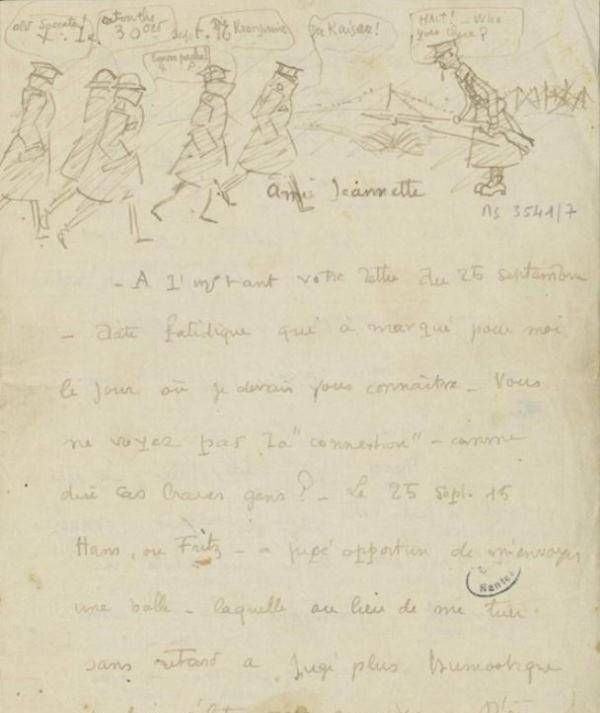 HALT! - Who
goes there?
Kaiser!
30
Sept. 16
Amie Jeannette
MS 3541/7
- A l'instant votre lettre du 25 septembre
- date fatidique qui à marqué pour moi
le jour où je devais vous connaître - Vous
ne voyez pas la "connextion" - comme
dire ces braves gens? - Le 25 Sept. 15
Hans, ou Fritz - a jugé opportun de m'envoyer
une balle - laquelle au lieu de me tuer
sans retard a jugé plus humoristique
Nantes